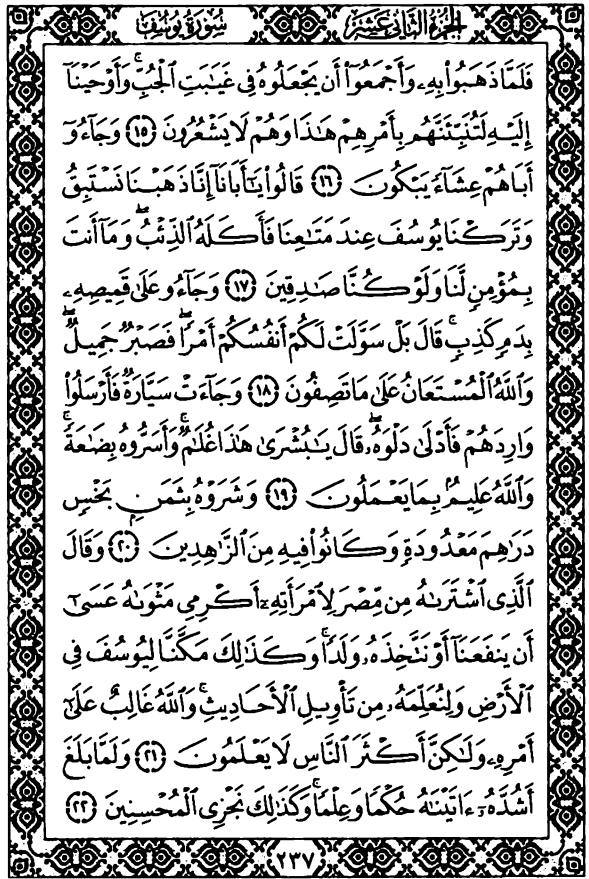 الجزء الثاني عشر سورة يوسف
فَلَمَّا ذَهَبُوا۟ بِهِۦ وَأَجْمَعُوٓا۟ أَن يَجْعَلُوهُ فِى غَيَـٰبَتِ ٱلْجُبِّ ۚ وَأَوْحَيْنَآ
إِلَيْهِ لَتُنَبِّئَنَّهُم بِأَمْرِهِمْ هَـٰذَا وَهُمْ لَا يَشْعُرُونَ ﴿١٥﴾ وَجَآءُوٓ
أَبَاهُمْ عِشَآءً يَبْكُونَ ﴿١٦﴾ قَالُوا۟ يَـٰٓأَبَانَآ إِنَّا ذَهَبْنَا نَسْتَبِقُ
وَتَرَكْنَا يُوسُفَ عِندَ مَتَـٰعِنَا فَأَكَلَهُ ٱلذِّئْبُ ۖ وَمَآ أَنتَ
بِمُؤْمِنٍ لَّنَا وَلَوْ كُنَّا صَـٰدِقِينَ ﴿١٧﴾ وَجَآءُو عَلَىٰ قَمِيصِهِۦ
بِدَمٍ كَذِبٍ ۚ قَالَ بَلْ سَوَّلَتْ لَكُمْ أَنفُسُكُمْ أَمْرًا ۖ فَصَبْرٌ جَمِيلٌ ۖ
وَٱللَّهُ ٱلْمُسْتَعَانُ عَلَىٰ مَا تَصِفُونَ ﴿١٨﴾ وَجَآءَتْ سَيَّارَةٌ فَأَرْسَلُوا۟
وَارِدَهُمْ فَأَدْلَىٰ دَلْوَهُۥ ۖ قَالَ يَـٰبُشْرَىٰ هَـٰذَا غُلَـٰمٌ ۚ وَأَسَرُّوهُ بِضَـٰعَةً ۚ
وَٱللَّهُ عَلِيمٌۢ بِمَا يَعْمَلُونَ ﴿١٩﴾ وَشَرَوْهُ بِثَمَنٍۭ بَخْسٍ
دَرَٰهِمَ مَعْدُودَةٍ وَكَانُوا۟ فِيهِ مِنَ ٱلزَّٰهِدِينَ ﴿٢٠﴾ وَقَالَ
ٱلَّذِى ٱشْتَرَىٰهُ مِن مِّصْرَ لِٱمْرَأَتِهِۦٓ أَكْرِمِى مَثْوَىٰهُ عَسَىٰٓ
أَن يَنفَعَنَآ أَوْ نَتَّخِذَهُۥ وَلَدًا ۚ وَكَذَٰلِكَ مَكَّنَّا لِيُوسُفَ فِى
ٱلْأَرْضِ وَلِنُعَلِّمَهُۥ مِن تَأْوِيلِ ٱلْأَحَادِيثِ ۚ وَٱللَّهُ غَالِبٌ عَلَىٰٓ
أَمْرِهِۦ وَلَـٰكِنَّ أَكْثَرَ ٱلنَّاسِ لَا يَعْلَمُونَ ﴿٢١﴾ وَلَمَّا بَلَغَ
أَشُدَّهُۥٓ ءَاتَيْنَـٰهُ حُكْمًا وَعِلْمًا ۚ وَكَذَٰلِكَ نَجْزِى ٱلْمُحْسِنِينَ ﴿٢٢﴾
٢٣٧